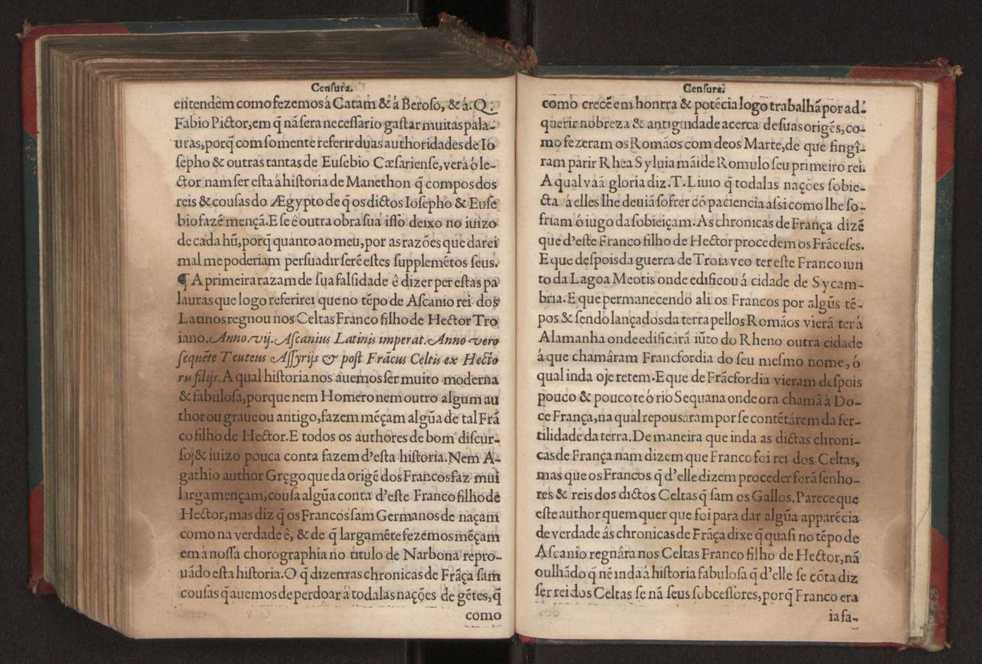 Censura.
entendem como fezemos á Catam & á Beroso, & á. Q.
Fabio Pictor, em q̃ nã sera necessario gastar muitas pala-
uras, porq̃ com somente referir duas authoridades de Io
sepho & outras tantas de Eusebio Cæsariense, verá ó le-
ctor nam ser esta á historia de Manethon q̃ compos dos
reis & cousas do Ægypto de q̃ os dictos Iosepho & Euse
bio fazẽ mençã. E se é outra obra sua isso deixo no iuizo
de cada hũ, porq̃ quanto ao meu, por as razões que darei
mal me poderiam persuadir serẽ estes supplemẽtos seus.
¶ A primeira razam de sua falsidade ê dizer per estas pa
lauras que logo referirei que no tẽpo de Ascanio rei dos
Latinos regnou nos Celtas Franco filho de Hector Tro
iano. Anno vij. Ascanius Latinis imperat. Anno vero
sequẽte Teuteus Assyrijs & post Frãcus Celtis ex Hecto
ris filijs. A qual historia nos auemos ser muito moderna
& fabulosa, porque nem Homero nem outro algum au
thor ou graue ou antigo, fazem mẽçam algũa de tal Frã
co filho de Hector. E todos os authores de bom discur-
so, & iuizo pouca conta fazem d'esta historia. Nem A-
gathio author Grego que da origẽ dos Francos faz mui
larga mençam, cousa algũa conta d'este Franco filho de
Hector, mas diz q̃ os Francos sam Germanos de naçam
como na verdade ê, & de q̃ largamẽte fezemos mẽçam
em a nossa chorographia no titulo de Narbona repro-
uãdo esta historia. O q̃ dizem as chronicas de Frãça sam
cousas q̃ auemos de perdoar a todalas nações de gẽtes, q̃
como
Censura.
como crecẽ em honrra & potẽcia logo trabalhã por ad-
querir nobreza & antiguidade acerca de suas origẽs, co-
mo fezeram os Romãos com deos Marte, de que fingî-
ram parir Rhea Syluia mãi de Romulo seu primeiro rei.
A qual vãa gloria diz. T. Liuio q̃ todalas nações sobie-
cta á elles lhe deuiã sofrer cõ paciencia assi como lhe so-
friam ó iugo da sobieiçam. As chronicas de França dizẽ
que d'este Franco filho de Hector procedem os Frãceses.
E que despois da guerra de Troia veo ter este Franco iun
to da Lagoa Meotis onde edificou á cidade de Sycam-
bria. E que permanecendo ali os Francos por algũs tẽ-
pos & sendo lançados da terra pellos Romãos vierã ter á
Alamanha onde edificarã iũto do Rheno outra cidade
à que chamâram Francfordia do seu mesmo nome, ó
qual inda oje retem. E que de Frãcfordia vieram despois
pouco & pouco te ó rio Sequana onde ora chamã á Do-
ce França, na qual repousaram por se contẽtárem da fer-
tilidade da terra. De maneira que inda as dictas chroni-
cas de França nam dizem que Franco foi rei dos Celtas,
mas que os Francos q̃ d'elle dizem proceder forã senho-
res & reis dos dictos Celtas q̃ sam os Gallos. Parece que
este author quem quer que foi para dar algũa apparẽcia
de verdade ás chronicas de Frãça dixe q̃ quasi no tẽpo de
Ascanio regnâra nos Celtas Franco filho de Hector, nã
oulhãdo q̃ nẽ inda á historia fabulosa q̃ d'elle se cõta diz
ser rei dos Celtas se nã seus sobcessores, porq̃ Franco era
ia fa-